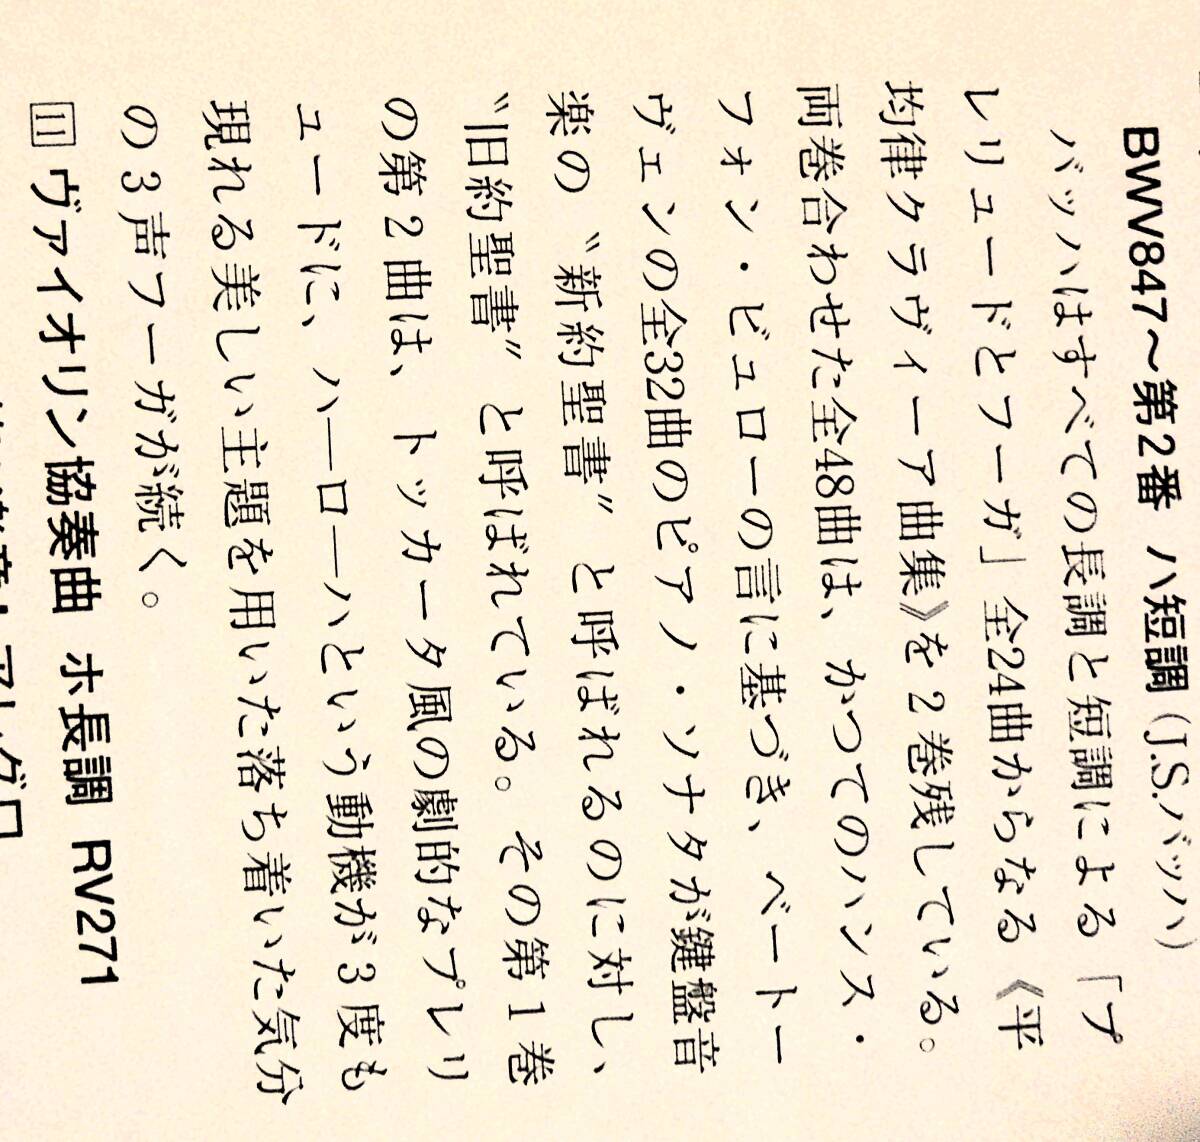 BWV847～第2番　ハ短調（J.S.バッハ）
バッハはすべての長調と短調による「プ
レリュードとフーガ」全24曲からなる《平
均律クラヴィーア曲集》を2巻残している。
両巻合わせた全48曲は、かつてのハンス・
フォン・ビューローの言に基づき、ベートー
ヴェンの全32曲のピアノ・ソナタが鍵盤音
楽の〝新約聖書〟と呼ばれるのに対し、
〝旧約聖書〟と呼ばれている。その第1巻
の第2曲は、トッカータ風の劇的なプレリ
ュードに、ハーローハという動機が3度も
現れる美しい主題を用いた落ち着いた気分
の3声フーガが続く。
11 ヴァイオリン協奏曲 ホ長調 RV271
アレグロ